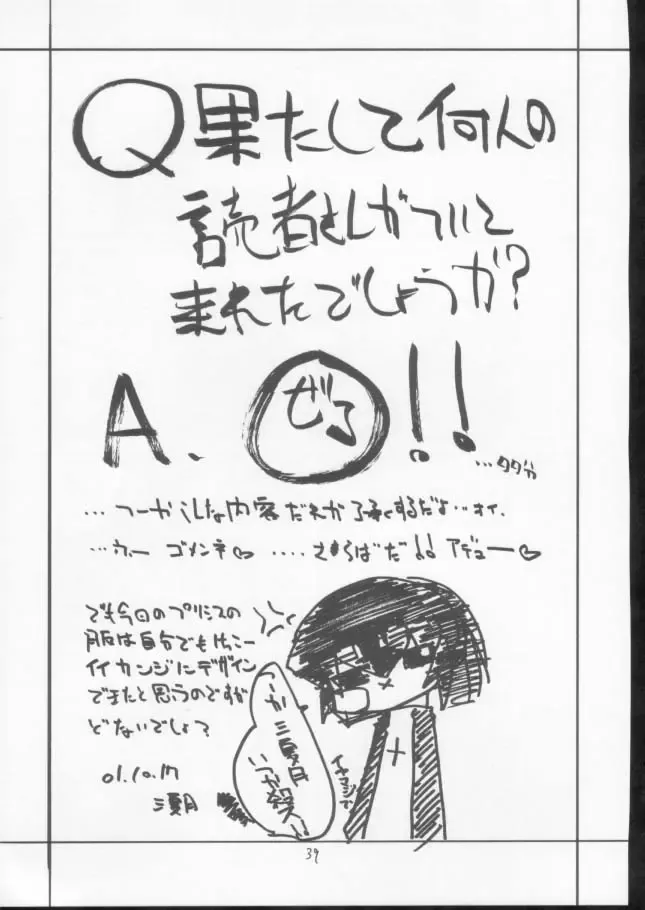 Q 果たして何人の
読者さんがついて
来れたでしょうか?
A. ぜろ!!
…タタ"カ
…つーかこんな内容だれが了承するだよ…オイ.
…ウ… ゴメンネ♡ ....さらばだ!! アデュー♡
でも今回のプリシスの
服は自分でもけっこー
イイカンジにデザイン
できたと思うのですが
どないでしょ?
01.10.17
つーか
いつか殺ス!!
イヤマジで
39